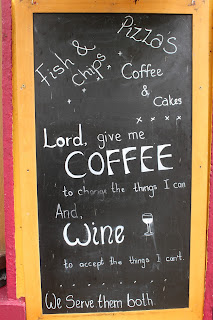 Fish &
Chips
Pizzas
Coffee
&
Cakes
Lord, give me
COFFEE
to change the things I can
And,
Wine
to accept the things I can't.
We Serve them both